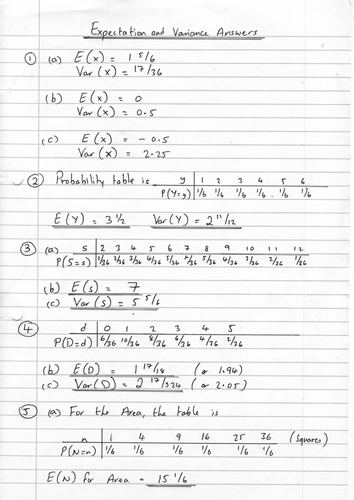 Expectation and Variance Answers
① (a) E(x) = 1 5/6
Var(x) = 17/36
(b) E(x) = 0
Var(x) = 0.5
(c) E(x) = -0.5
Var(x) = 2.25
② Probability table is y | 1 2 3 4 5 6
P(Y=y) | 1/6 1/6 1/6 1/6 1/6 1/6
E(Y) = 3 1/2 Var(Y) = 2 11/12
③ (a) s | 2 3 4 5 6 7 8 9 10 11 12
P(S=s) | 1/36 2/36 3/36 4/36 5/36 6/36 5/36 4/36 3/36 2/36 1/36
(b) E(s) = 7
(c) Var(s) = 5 5/6
④ d | 0 1 2 3 4 5
P(D=d) | 6/36 10/36 8/36 6/36 4/36 2/36
(b) E(D) = 1 17/18 (or 1.94)
(c) Var(D) = 2 17/324 (or 2.05)
⑤ (a) For the Area, the table is
n | 1 4 9 16 25 36 (squares)
P(N=n) | 1/6 1/6 1/6 1/6 1/6 1/6
E(N) for Area = 15 1/6